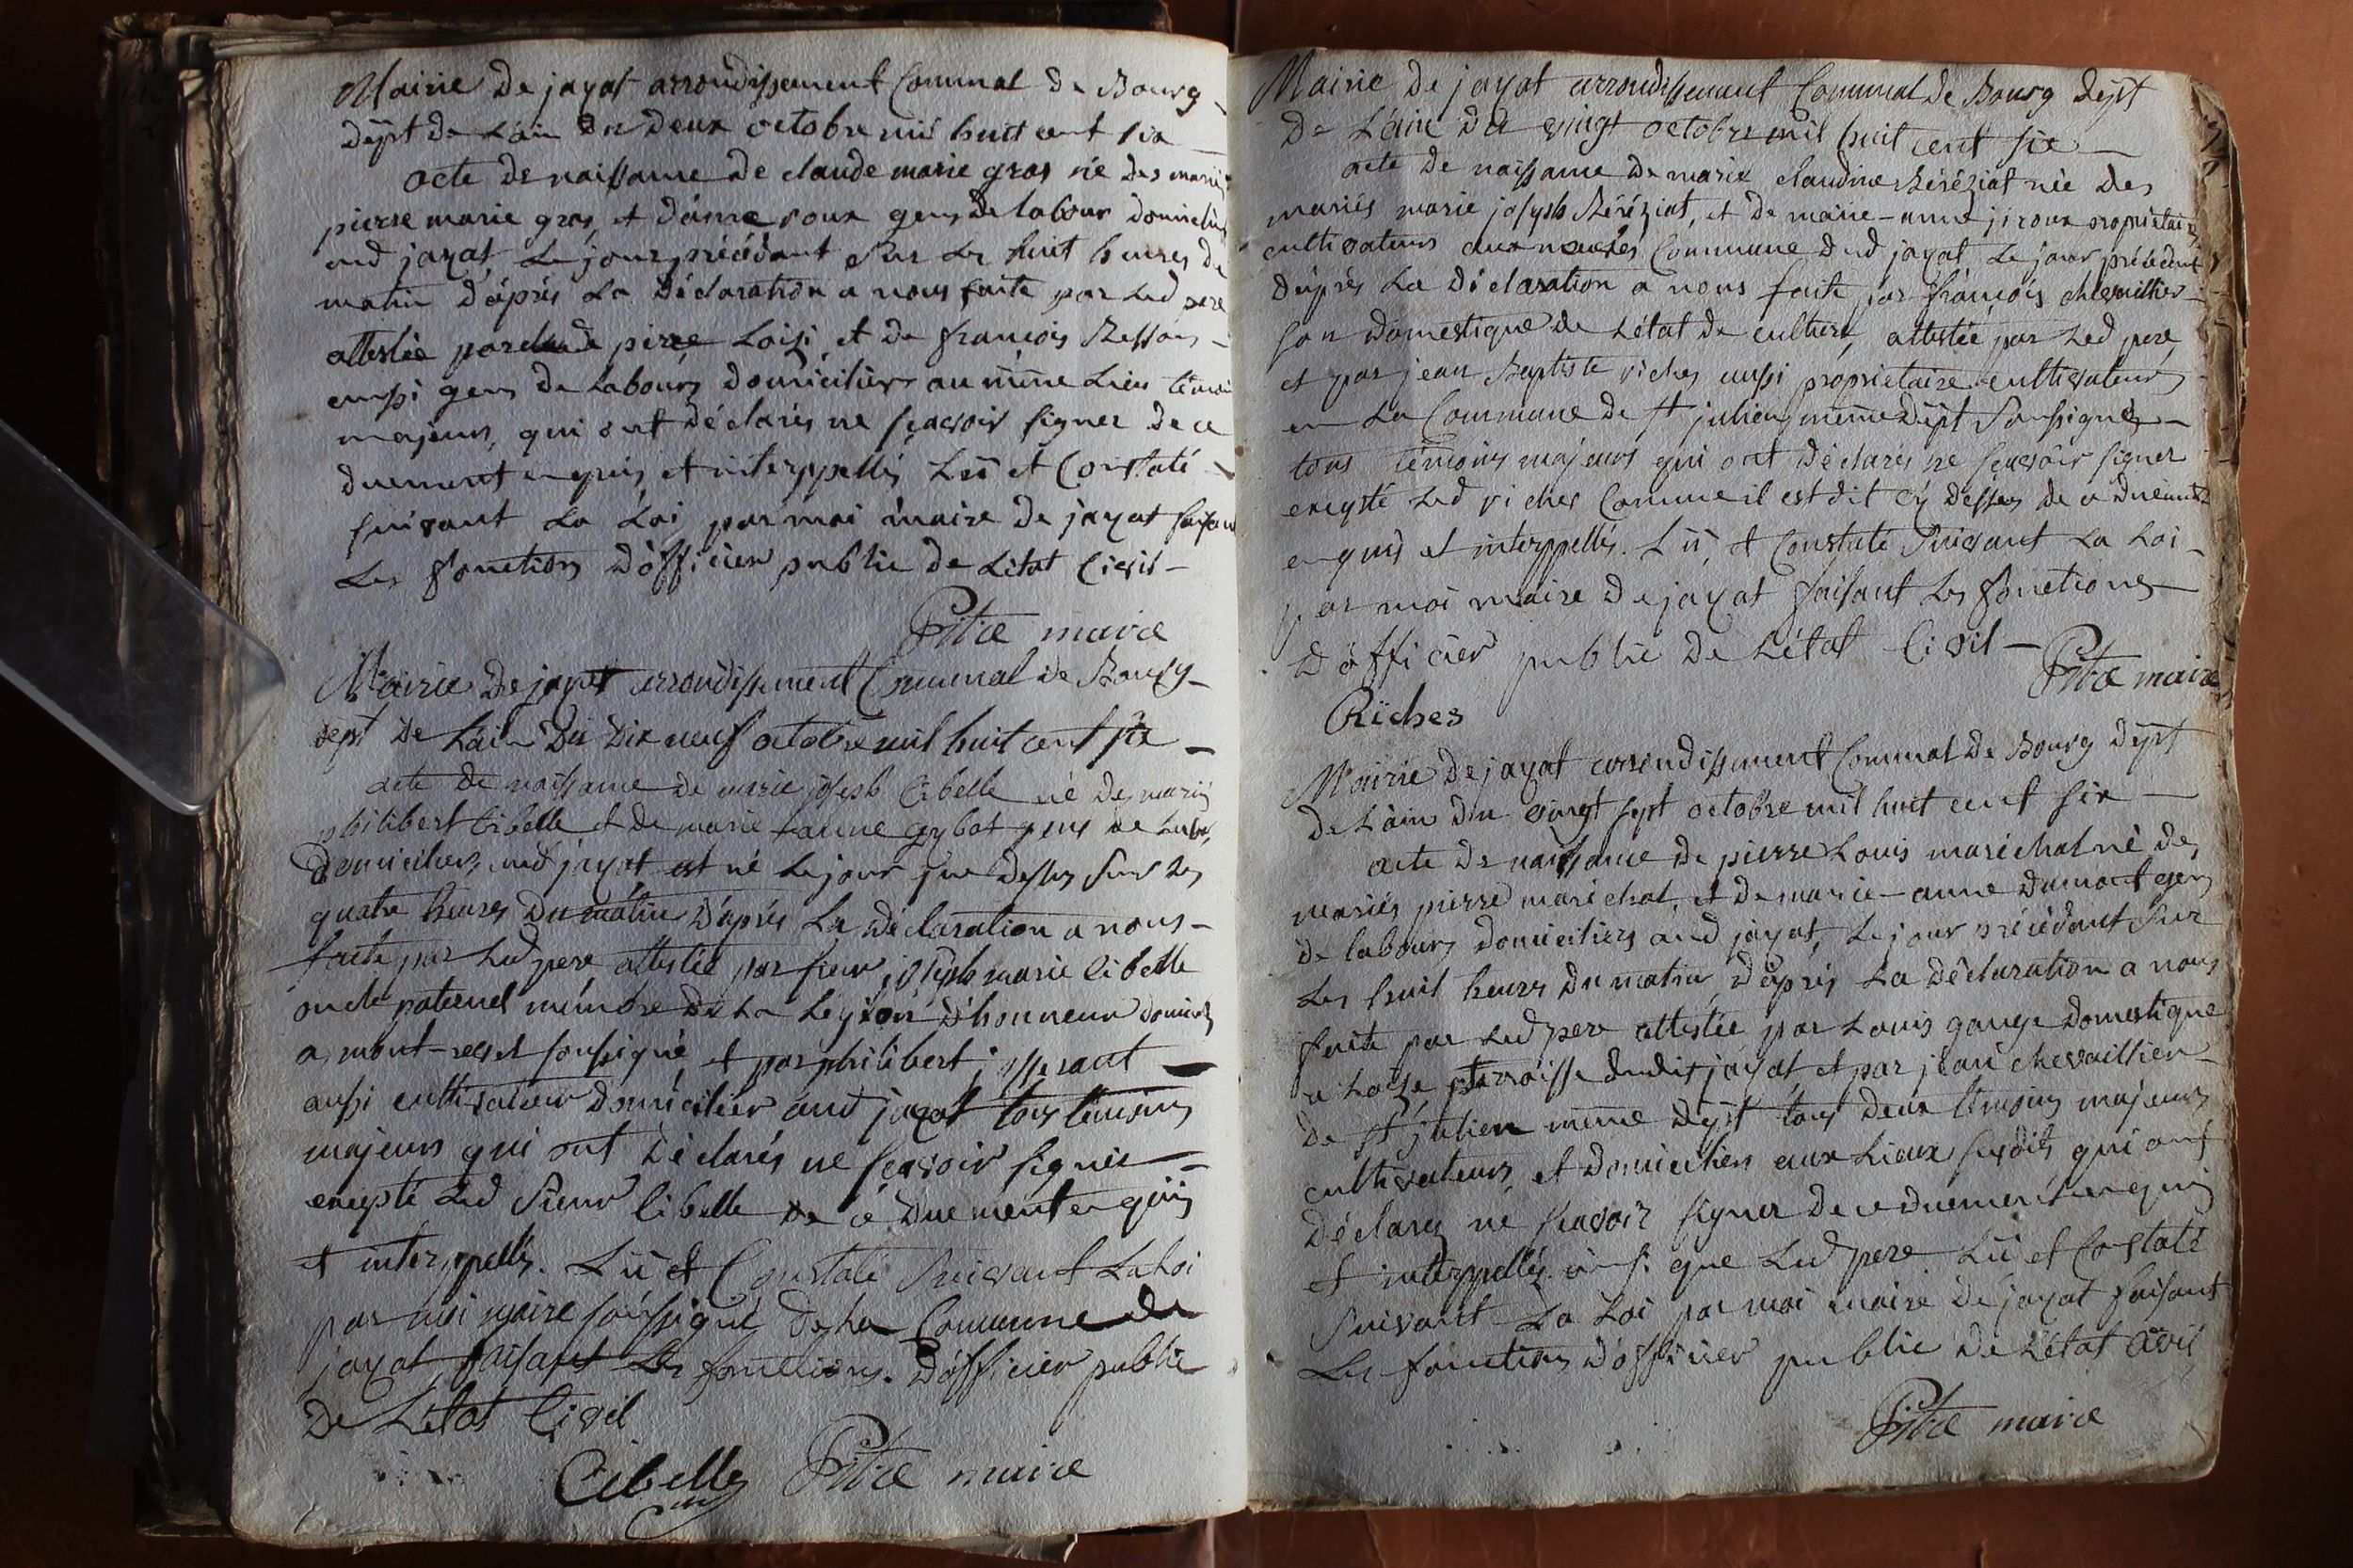 Mairie De jayat arrondissement Communal De Bourg
dépt De L'ain Du Deux octobre mil huit cent six
acte De naissance De claude marie gros né Des mariés
pierre marie gros, et D'anne roux gens De labour Domiciliés
aud jayat, Le jour précédant Sur Les huit heures Du
matin D'après La Déclaration a nous faite par Led pere
attestée par pierre Loisi et De françois Besson
aussi gens De Labours Domiciliers au même Lieu témoins
majeurs, qui ont Déclarés ne sçavoir signer De ce
duement enquis et interppellés Lû et Constaté
suivant La Loi par moi maire De jayat faisant
Les fonctions D'officier public De L'état Civil
Pitre maire
Mairie De jayat arrondissement Communal De Bourg
dept De L'ain Du Dix neuf octobre mil huit cent six
acte De naissance De marie joseph Cibelle né Des mariés
philibert Cibelle et De marie-anne gens De
Domiciliers aud jayat est né Le jour que Dessus Sur Les
quatre heures Du matin D'après La Déclaration a nous
faite par Led pere attestée par sieur joseph marie Cibelle
oncle paternel membre De La Légion D'honneur
a mont-revel soussigné, et par philibert josserant
aussi cultivateur Domicilier aud jayat tous témoins
majeurs qui ont Déclarés ne sçavoir signer
excepté Led Sieur Cibelle De ce Duement enquis
et interppellés. Lû et Constaté Suivant La Loi
par moi maire soussigné De La Commune De
jayat, faisant Les fonctions D'officier public
De L'état Civil
Cibelle Pitre maire
Mairie De jayat arrondissement Communal De Bourg dépt
De L'ain Du vingt octobre mil huit cent six
acte De naissance De marie claudine Béréziat née Des
mariés marie joseph Béréziat, et De marie-anne jiroux propriétaires
cultivateurs aux Commune Dud jayat Le jour précédent
D'après La Déclaration a nous faite par françois chevaillier
son Domestique De L'état De culture, attestée par Led pere,
et par jean Baptiste riches aussi propriétaire cultivateurs
en La Commune De St julien même Dépt Soussignés
tous témoins majeurs qui ont Déclarés ne sçavoir signer
excepté Led riches Comme il est dit cy Dessus De ce Duement
enquis et interppellés. Lû et Constaté Suivant La Loi
par moi maire De jayat faisant Les fonctions
D'officier public De L'état Civil
Pitre maire
Riches
Mairie De jayat arrondissement Communal De Bourg Dépt
De L'ain Du vingt sept octobre mil huit cent six
acte De naissance De pierre Louis maréchal né Des
mariés pierre maréchal, et De marie-anne Dumont gens
De labours Domiciliers aud jayat, Le jour précédant Sur
Les huit heures Du matin, D'après La Déclaration a nous
faite par Led pere attestée par Louis gauge Domestique
a parroisse Dudit jayat et par jean chevaillier
De St julien même Dépt tous Deux témoins majeurs
cultivateurs, et Domiciliers aux Lieux susdits qui ont
Déclarés ne sçavoir signer De ce duement enquis
et interppellés ainsi que Led pere Lû et Constaté
Suivant La Loi par moi maire De jayat faisant
Les fonctions D'officier public De L'état Civil
Pitre maire